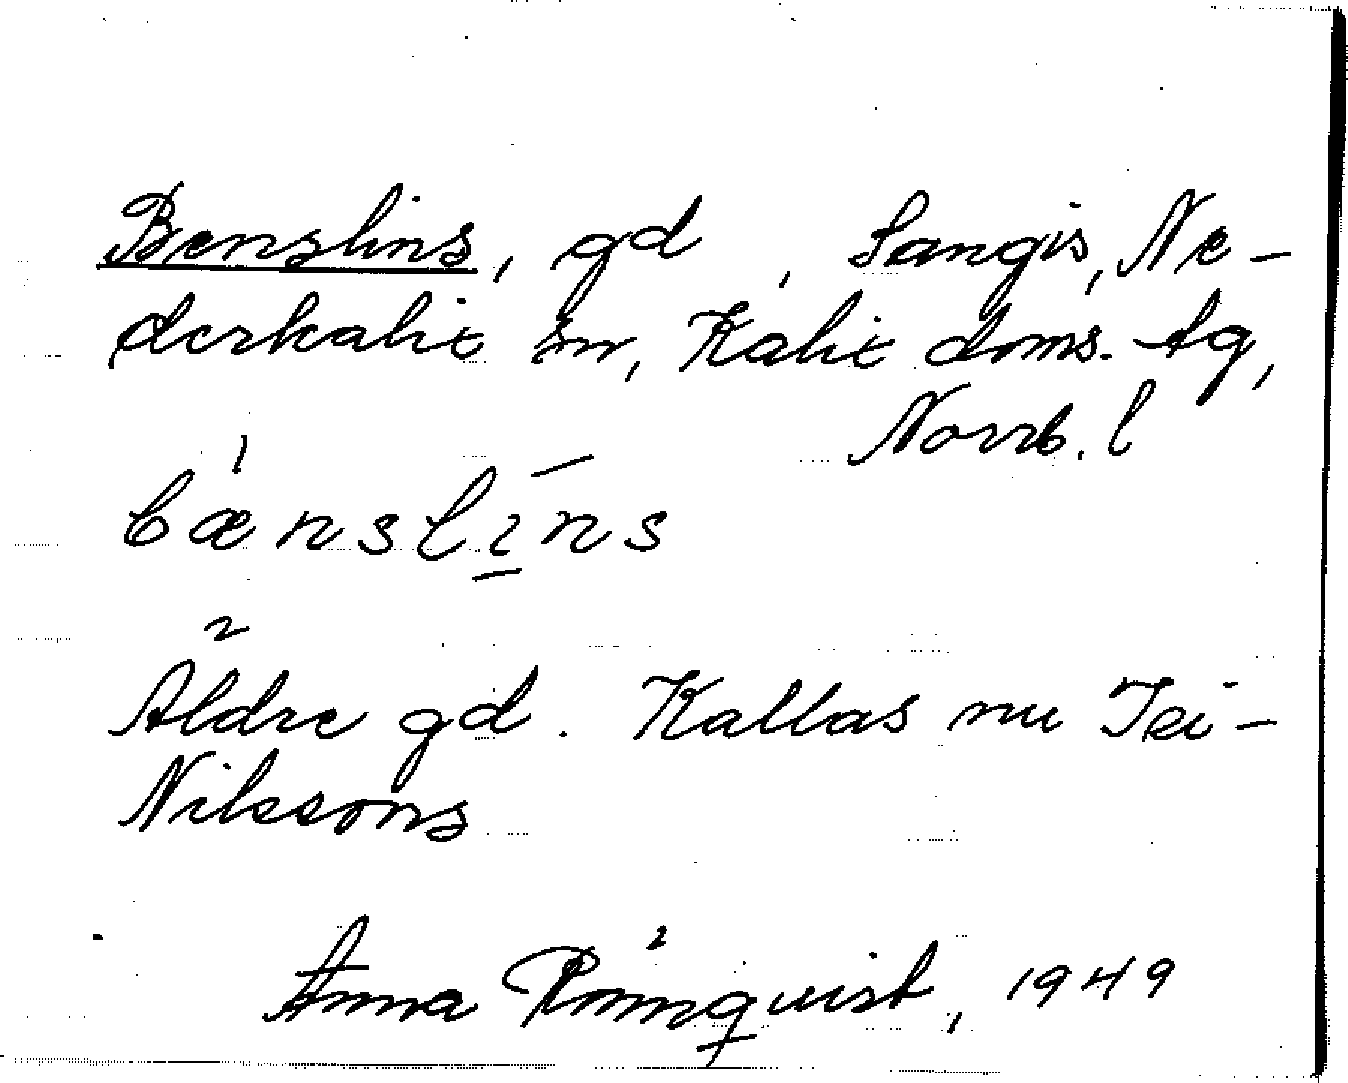 Benslins, gd , Sangis, Ne-
derkalix sn, Kalix doms. tg,
Norrb. l
bænslīns
Äldre gd. Kallas nu Tei-
Nilssons
Anna Rönnquist, 1949